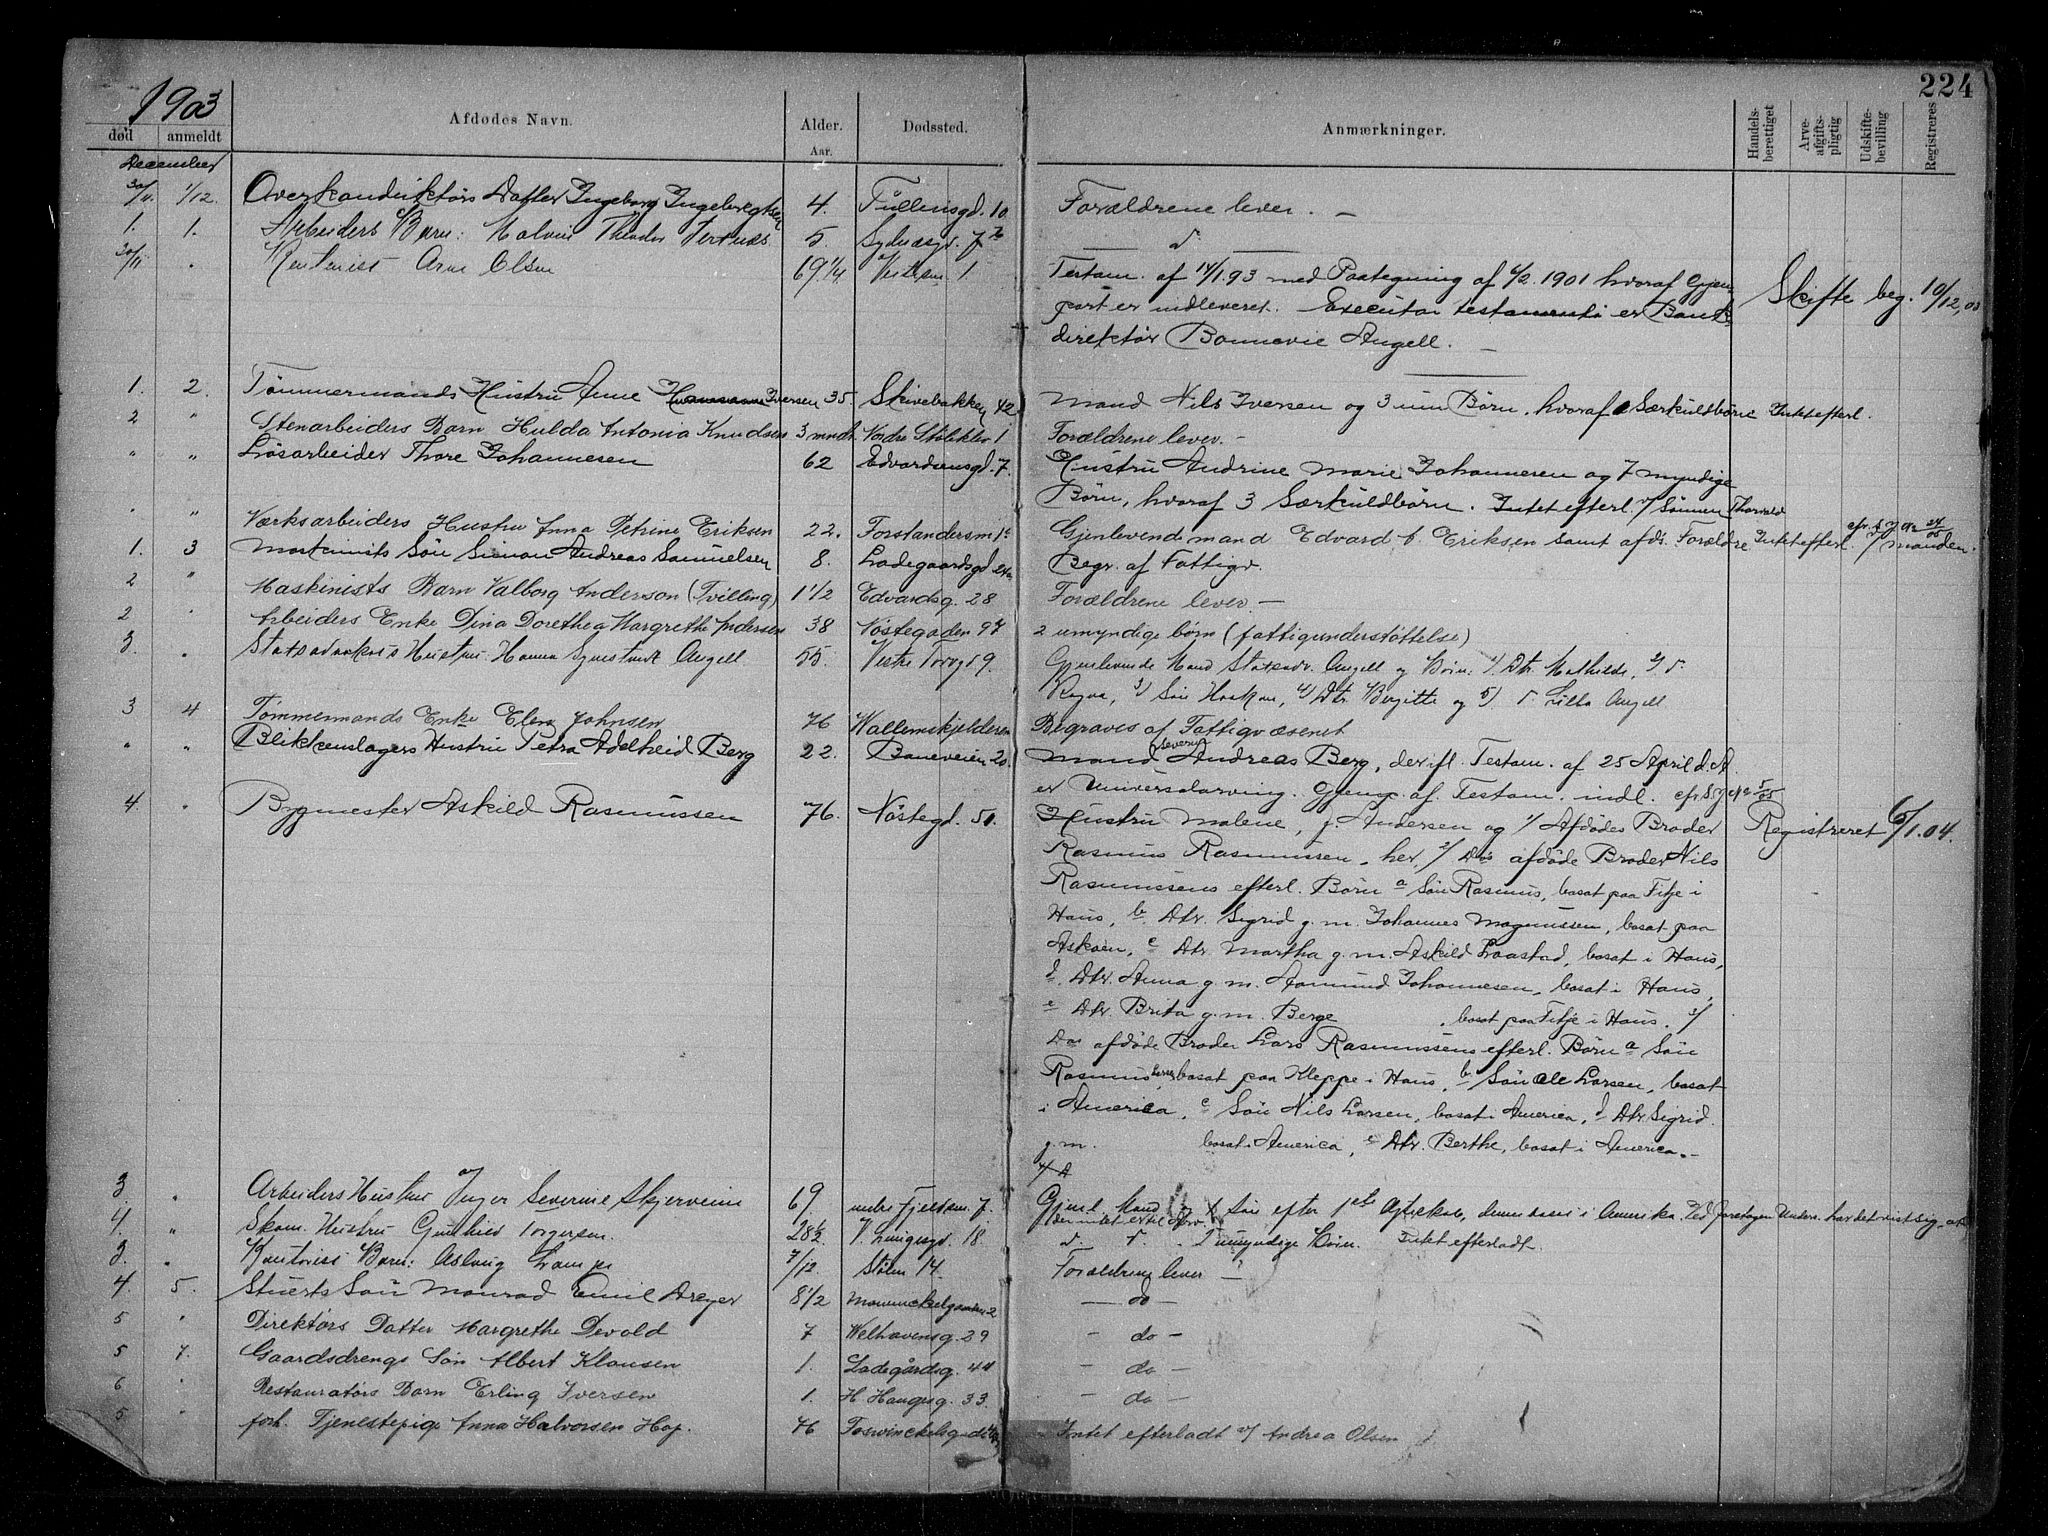 224
1903
død anmeldt Afdødes Navn. Alder. Aar. Dødssted. Anmærkninger. Handelsberettiget Arveafgiftspligtig Udskiftebevilling Registreres
December
30/11 1/12. Overkonduktørs Datter Ingeborg Ingebregtsen 4. Tullinsgd. 10 Forældrene lever. —
1. 1. Arbeiders Barn: Malvin Theodor 5. Sydnesgd. 7 b — d. —
30/11 " Rentenist Arne Olsen 69 1/4 1 Testam. af 14/1.93 med Paategning af 6/2. 1901 hvoraf Gjen-
part er indleveret. Executor testamenti er Bank-
direktør Bonnevie Angell. — Skifte beg. 10/12,03
1. 2. Tømmermands Hustru Anne Iversen 35. Skivebakken 42 Mand Nils Iversen og 3 um Børn, hvoraf Særkuldbørn Intet efterl.
2 " Stenarbeiders Barn Hulda Antonia Knudsen 3 mndr. Nordre Stølekler 1 Forældrene lever. —
" " Løsarbeider Thore Johannesen 62 Edvardsensgd. 7. Hustru Andrine Marie Johannesen og 7 myndige
Børn, hvoraf 3 Særkuldbørn. Intet efterl. v/ Sønnen Thorvald
" " Værksarbeiders Hustru Anna Petrine Eriksen 22. Forstandersm 1 c Gjenlevende mand Edvard Eriksen samt afds. Forældre Intet efterl. v/ manden.
1. 3 Maskinists Søn Simon Andreas Samuelsen 8. Ladegaardsgd 24a Begr. af Fattigv.
2 " Maskinists Barn Valborg Anderson (Tvilling) 1 1/2 Edvardsg. 28 Forældrene lever —
2 " Arbeiders Enke Dina Dorethea Margrethe Andersen 38 Nøstegaden 97 2 umyndige børn (fattigunderstøttelse)
3. " Statsadvokats Hustru: Hanna Angell 55. Vestre Torvgd 9. Gjenlevende Mand Statsadv. Angell og Børn: 1) Dtr. Mathilde, 2) d.
Ragna, 3) Søn Haakon, 4) Dtr Bergitte og 5) d. Lilla Angell
3 4 Tømmermands Enke Elen Johnsen 76 Wallemskjelderen Begraves af Fattigvæsenet
" " Blikkenslagers Hustru Petra Adelheid Berg 22. Baneveien 20. Mand Severin Andreas Berg, der ifl. Testam. af 25 April d. A.
er Universalarving. Gjenp. af Testam. indl.
4. " Bygmester Askild Rasmussen 76. Nøstegd. 51. Hustru Malene, f. Andersen og 1/ Afdødes Broder Registreret 6/1.04.
Rasmus Rasmussen, her, 2/ Ds afdøde Broder Nils
Rasmussens efterl. Børn a Søn Rasmus, bosat paa Fitje i
Haus, b. Dtr. Sigrid g. m. Johannes Magnussen, bosat paa
Askøen, c Dtr. Martha g. m. Askild Laastad, bosat i Haus,
d. Dtr. Anna g. m. Aamund Johannesen, bosat i Haus,
e Dtr. Brita g. m. Berge , bosat paa Fitje i Haus. 3/
Ds afdøde Broder Lars Rasmussens efterl. Børn a Søn
Rasmus Larsen, bosat paa Kleppe i Haus, b Søn Ole Larsen, bosat
i America, c Søn Nils Larsen, bosat i America, d Dtr. Sigrid
g. m. bosat i America, e Dtr. Berthe, bosat i America. —
3. " Arbeiders Hustru Inger Severine Skjerveim 69. 7. Gjenl. Mand Søn efter 1ste Ægteskab, denne bosat i Amerika.
4. " Skom. Hustru Gunhild Torgersen. 28 1/2 V. Lungegd. 18. d. d. umyndige Børn. Intet efterladt.
3. " Kontorists Barn: Aslaug Lampe 7/12 Stølen 14. Forældrene lever —
4. 5. Stuerts Søn Monrad Emil Dreyer 8 1/2 2 — do —
5 " Direktørs Datter Margrethe Devold 7 Welhavensg. 29 — do —
5 7. Gaardsdrengs Søn Albert Klausen 1. Ladegårdsg. 44 — do —
6 " Restauratørs Barn Erling Iversen 1. H Haugesg. 33. — do —
5 " forh. Tjenestepige Anna Halvorsen Hop. 46 Intet efterladt v/ Andrea Olsen